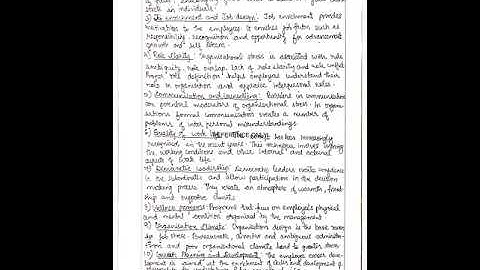 stress in individuals.
3) Job enrichment and Job design: Job enrichment provides
motivation to the employees. It enriches job factors such as
responsibility, recognition and opportunity for advancement
growth and self esteem.
4) Role clarity: Organisational stress is associated with role
ambiguity, role overlap, lack of role clarity and role conflict.
Proper role definition helps employees understand their
role in organisation and appraise interpersonal roles.
5) Communication and counselling: Barriers in communication
are potential moderators of organisational stress. In organi-
sations formal communication creates a number of
problems of inter personal misunderstandings.
6) Quality of work life: has been increasingly
recognised in the recent years. This technique involves improving
the working conditions and other internal and external
aspects of work life.
7) Democratic leadership: Democratic leaders create confidence
in the subordinates and allow participation in the decision
making process. They create an atmosphere of warmth, friend-
ship and supportive climate.
8) Wellness programs: Programs that focus on employee's physical
and mental condition organised by the management.
9) Organisation Climate: Organisation design is the base
for job stress. Bureaucratic, and ambiguous admini-
stration and poor organisational climate lead to greater stress.
10) Career Planning and Development: The employee career
development is aimed at the enrichment of skills and development of